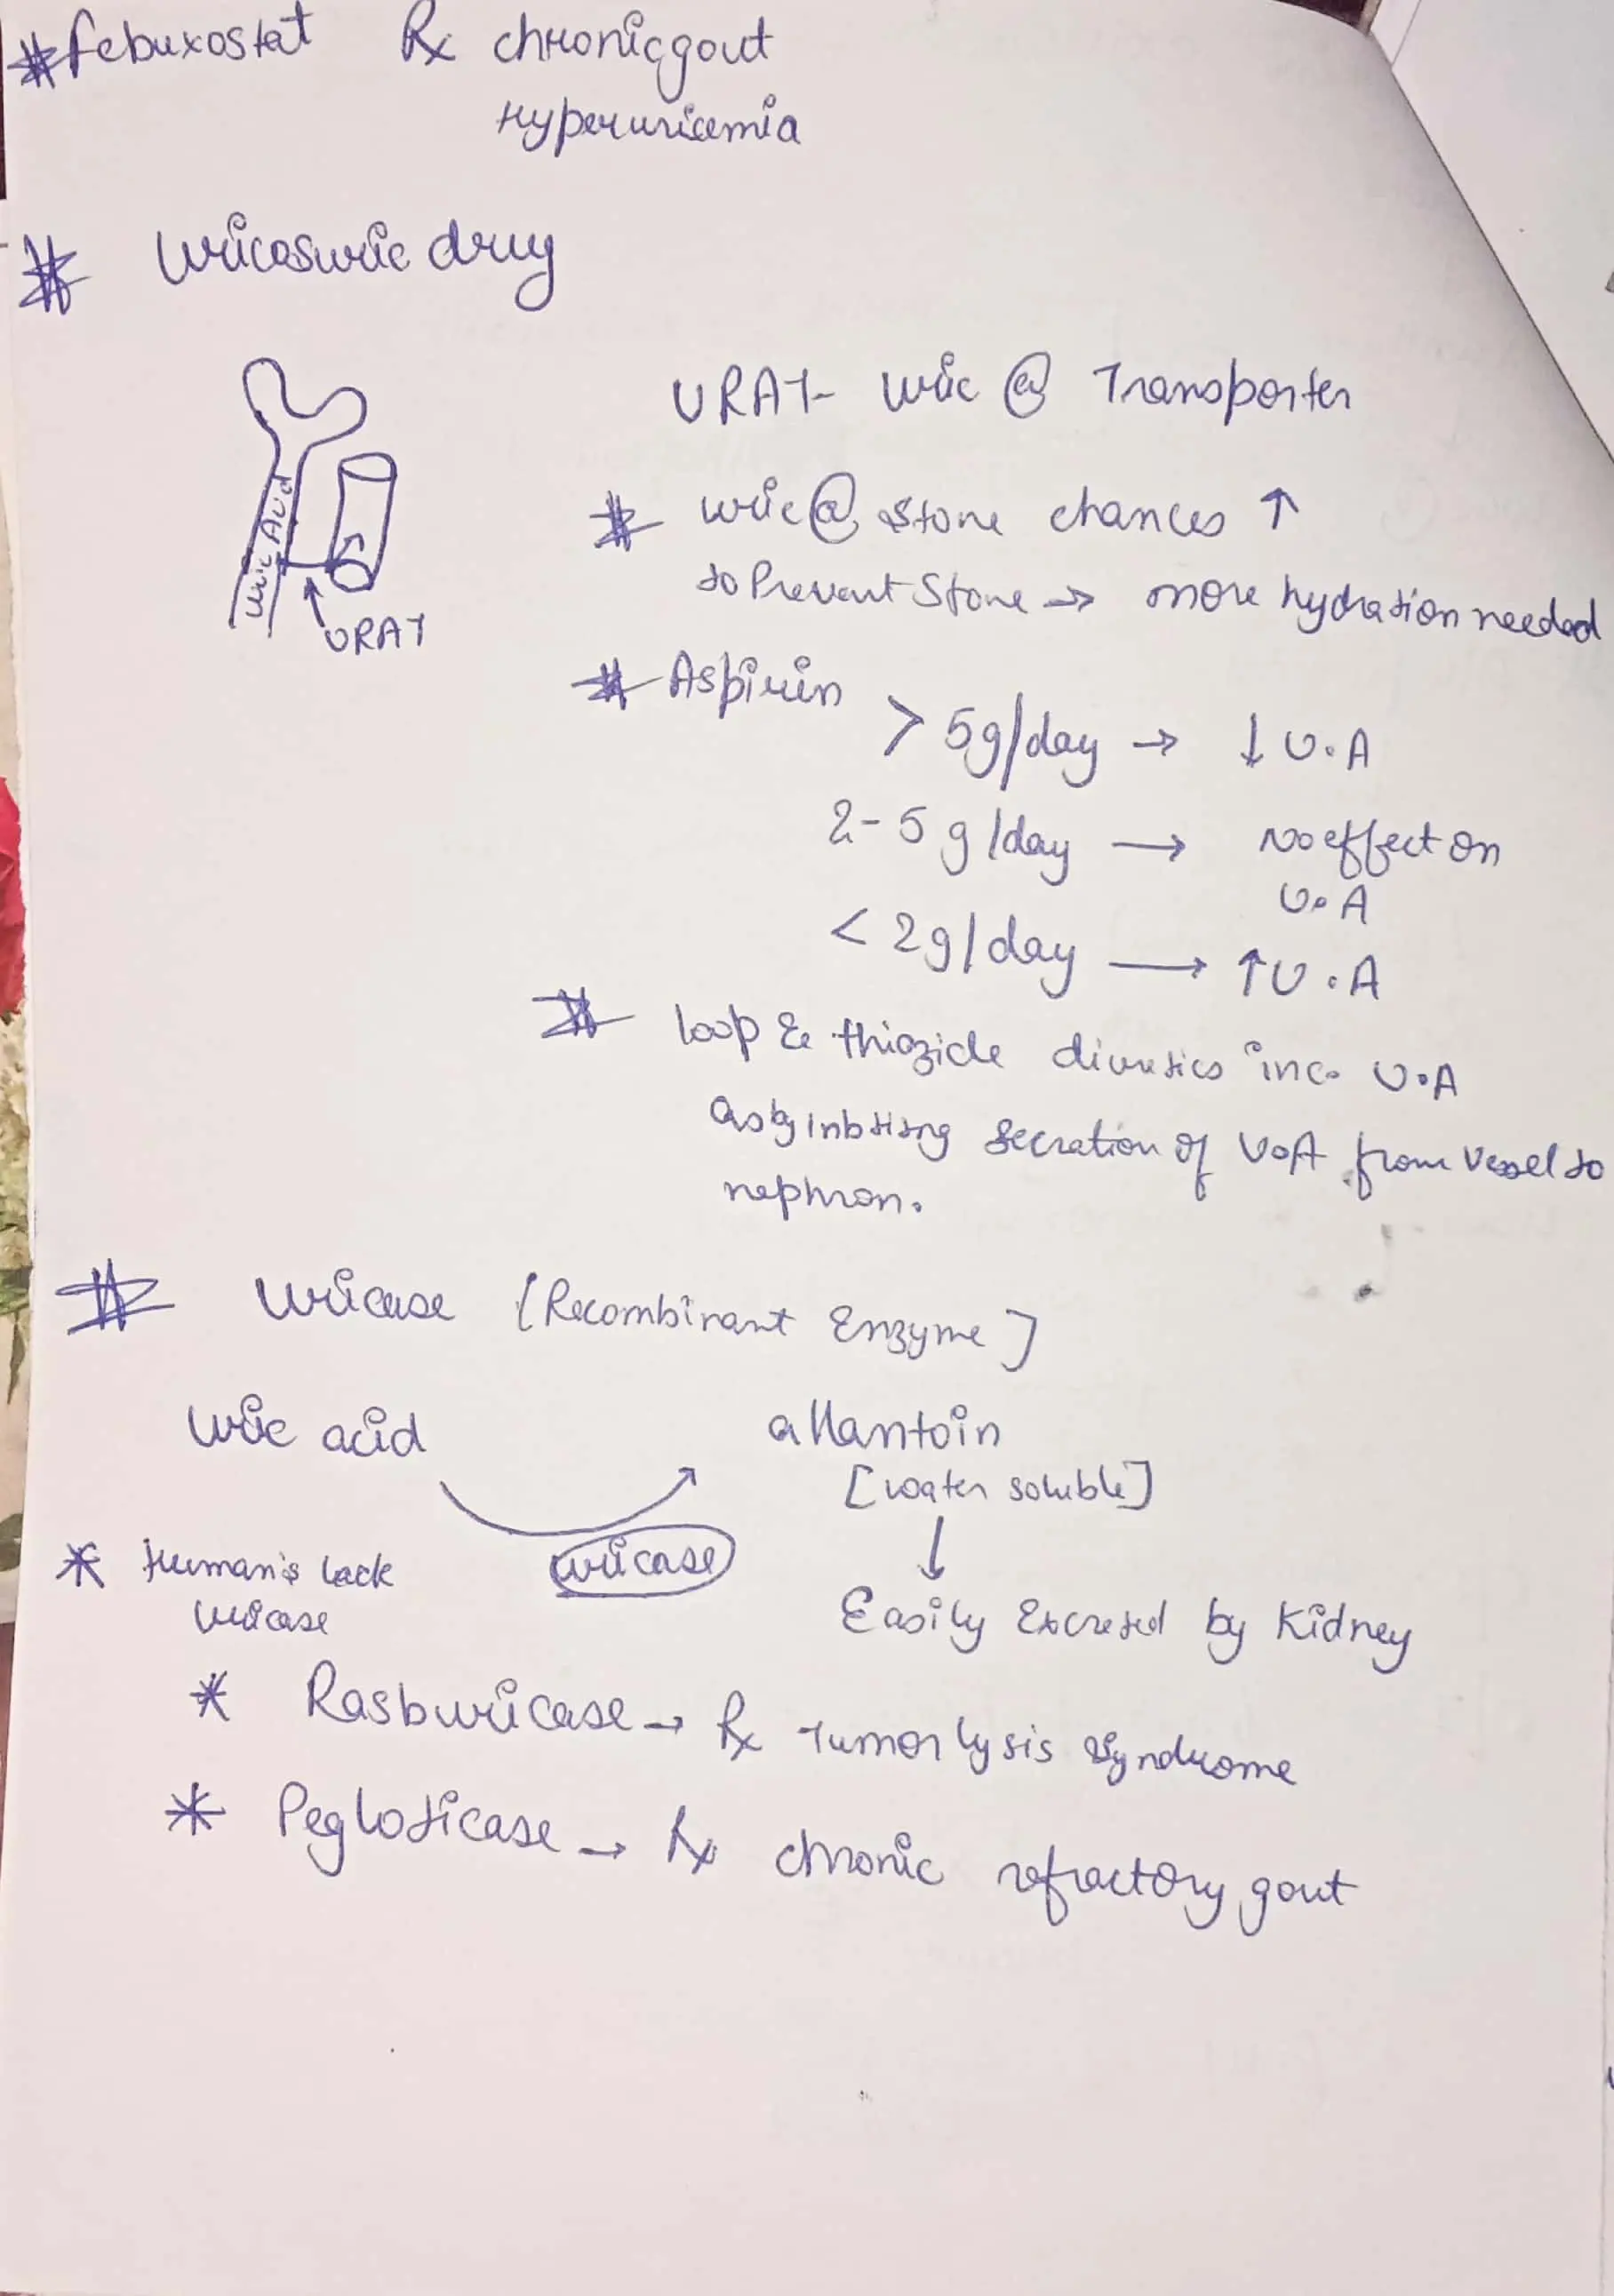 # Febuxostat Rx chronic gout
Hyperuricemia
# Uricosuric drug
URAT- Uric @ Transporter
# Uric @ Stone chances ↑
to Prevent Stone → more hydration needed
Uric Acid
URAT
# Aspirin
> 5g/day → ↓ U.A
2-5 g/day → No effect on
U.A
< 2g/day → ↑ U.A
# loop & thiazide diuretics inc. U.A
as by inbiting secretion of U.A from vessel to
nephron.
# Uricase [Recombinant Enzyme]
Uric acid allantoin
[water soluble]
uricase
↓
* Human's lack
uricase
Easily Excreted by Kidney
* Rasburicase → Rx Tumor lysis Syndrome
* Pegloticase → Rx chronic refractory gout